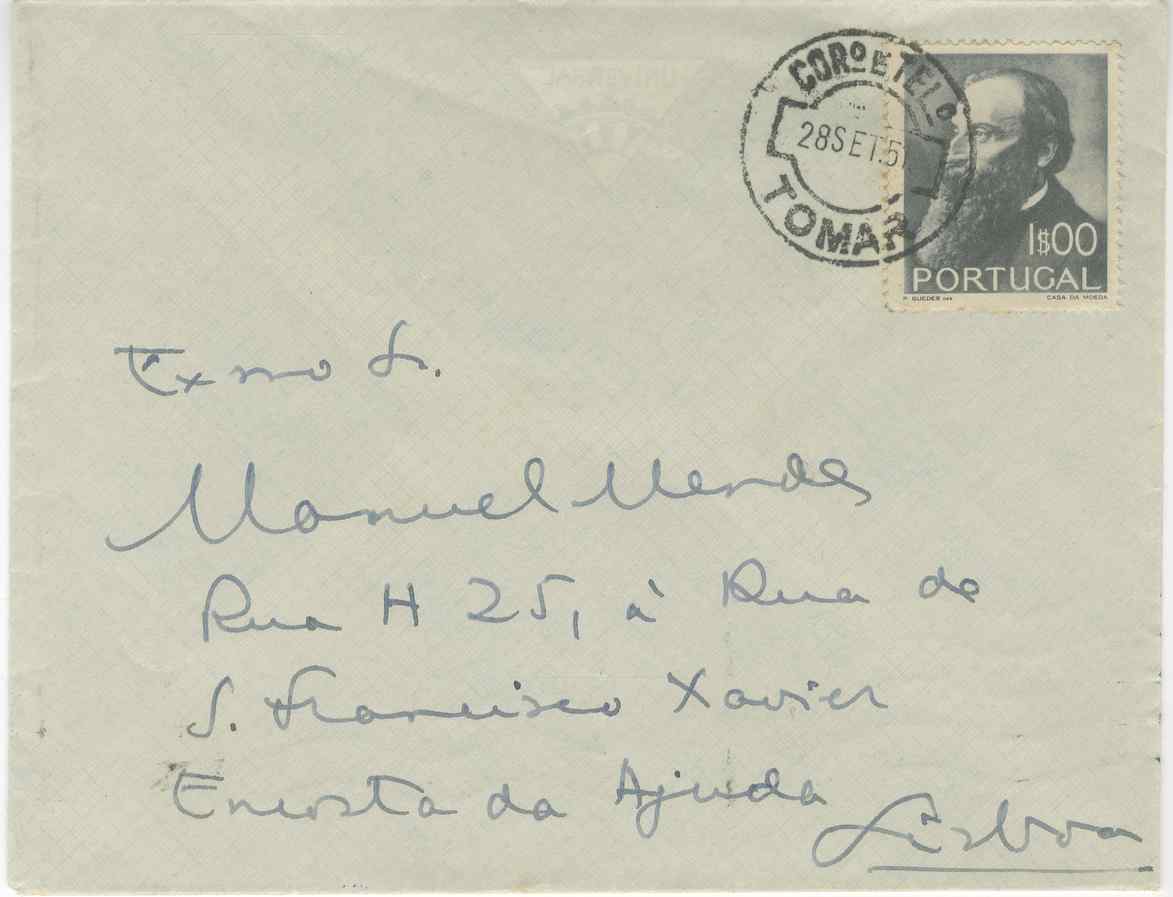 CORº E TELº
28 SET.5
TOMAR
1$00
PORTUGAL
P. GUEDES CASA DA MOEDA
Exmo Sr.
Manuel Mendes
Rua H 25, à Rua de
S. Francisco Xavier
Encosta da Ajuda
Lisboa